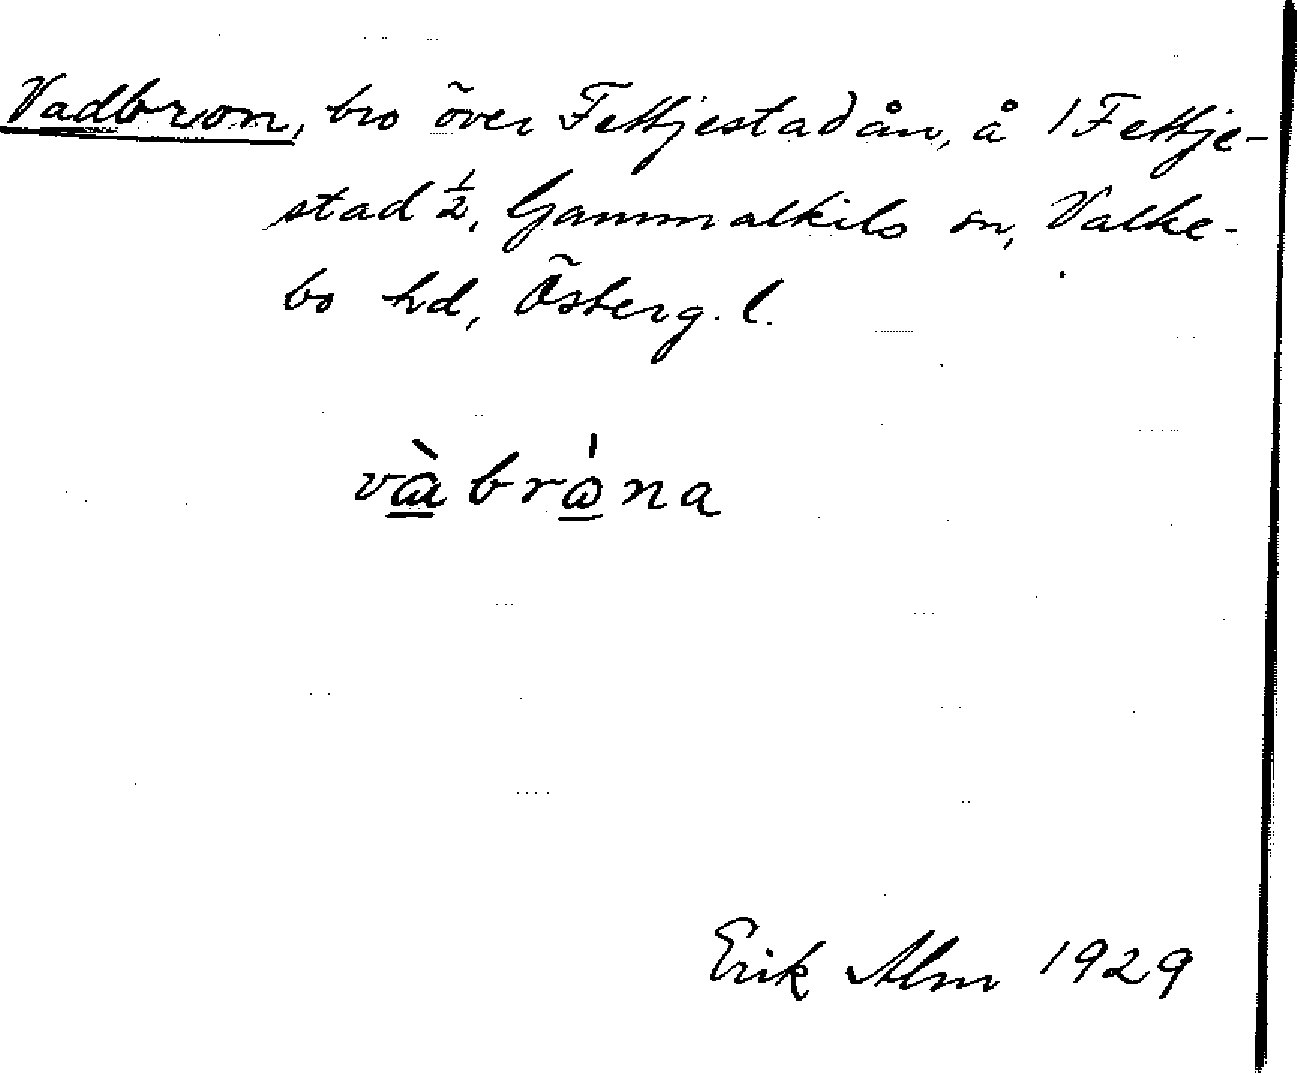 Vadbron, bro över Fettjestadån, å 1 Fettje-
stad ½, Gammalkils sn, Valke-
bo hd, Österg. l.
vɑ̀brɷ́na
Erik Alm 1929